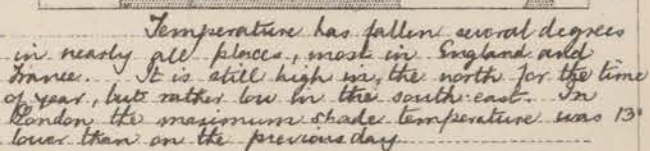 Temperature has fallen several degrees
in nearly all places, most in England and
France. It is still high in, the north for the time
of year, but rather low in the south-east. In
London the maximum shade temperature was 13°
lower than on the previous day